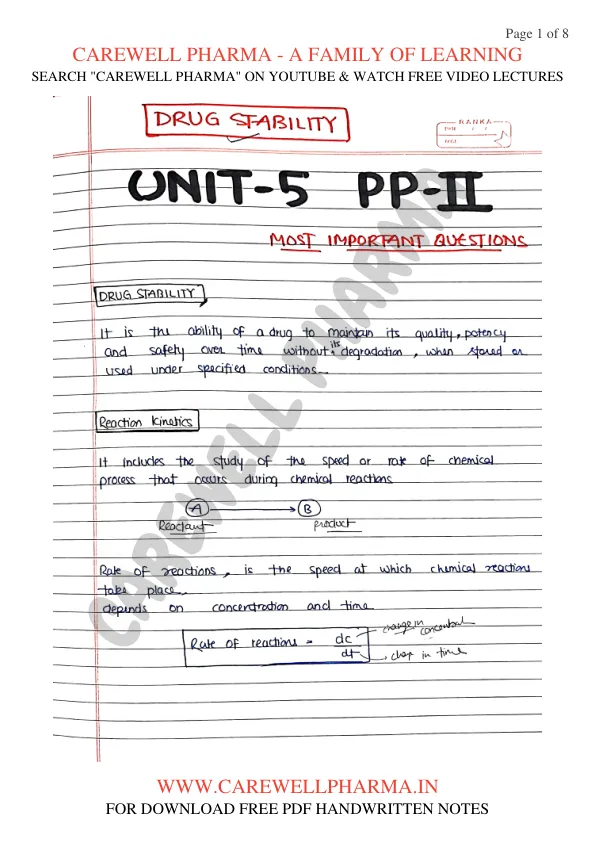 Page 1 of 8
CAREWELL PHARMA - A FAMILY OF LEARNING
SEARCH "CAREWELL PHARMA" ON YOUTUBE & WATCH FREE VIDEO LECTURES
DRUG STABILITY
RANKA
DATE / /
PAGE
UNIT-5 PP-II
MOST IMPORTANT QUESTIONS
DRUG STABILITY
It is the ability of a drug to maintain its quality, potency
and safety over time without its degradation, when stored or
used under specified conditions.
Reaction kinetics
It includes the study of the speed or rate of chemical
process that occurs during chemical reactions
A B
Reactant product
Rate of reactions, is the speed at which chemical reactions
take place.
depends on concentration and time
Rate of reactions = dc/dt
change in
in time
CAREWELL PHARMA
WWW.CAREWELLPHARMA.IN
FOR DOWNLOAD FREE PDF HANDWRITTEN NOTES